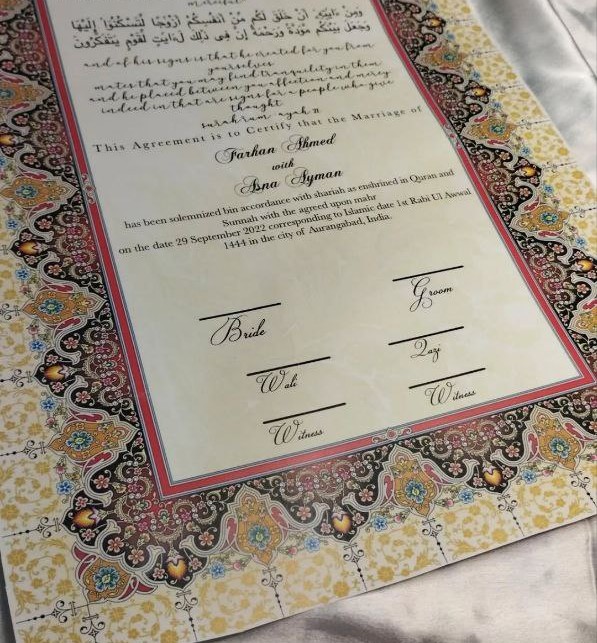 merciful
وَمِنْ ءَايَٰتِهِۦٓ أَنْ خَلَقَ لَكُم مِّنْ أَنفُسِكُمْ أَزْوَٰجًا لِّتَسْكُنُوٓا۟ إِلَيْهَا
وَجَعَلَ بَيْنَكُم مَّوَدَّةً وَرَحْمَةً إِنَّ فِى ذَٰلِكَ لَءَايَٰتٍ لِّقَوْمٍ يَتَفَكَّرُونَ
and of his signs is that he created for you from
yourselves
mates that you may find tranquility in them
and he placed between you affection and mercy
indeed in that are signs for a people who give
thought
surah rum ayah 21
This Agreement is to Certify that the Marriage of
Farhan Ahmed
with
Asna Ayman
has been solemnized bin accordance with shariah as enshrined in Quran and
Sunnah with the agreed upon mahr
on the date 29 September 2022 corresponding to Islamic date 1st Rabi Ul Awwal
1444 in the city of Aurangabad, India.
Bride
Groom
Wali
Qazi
Witness
Witness